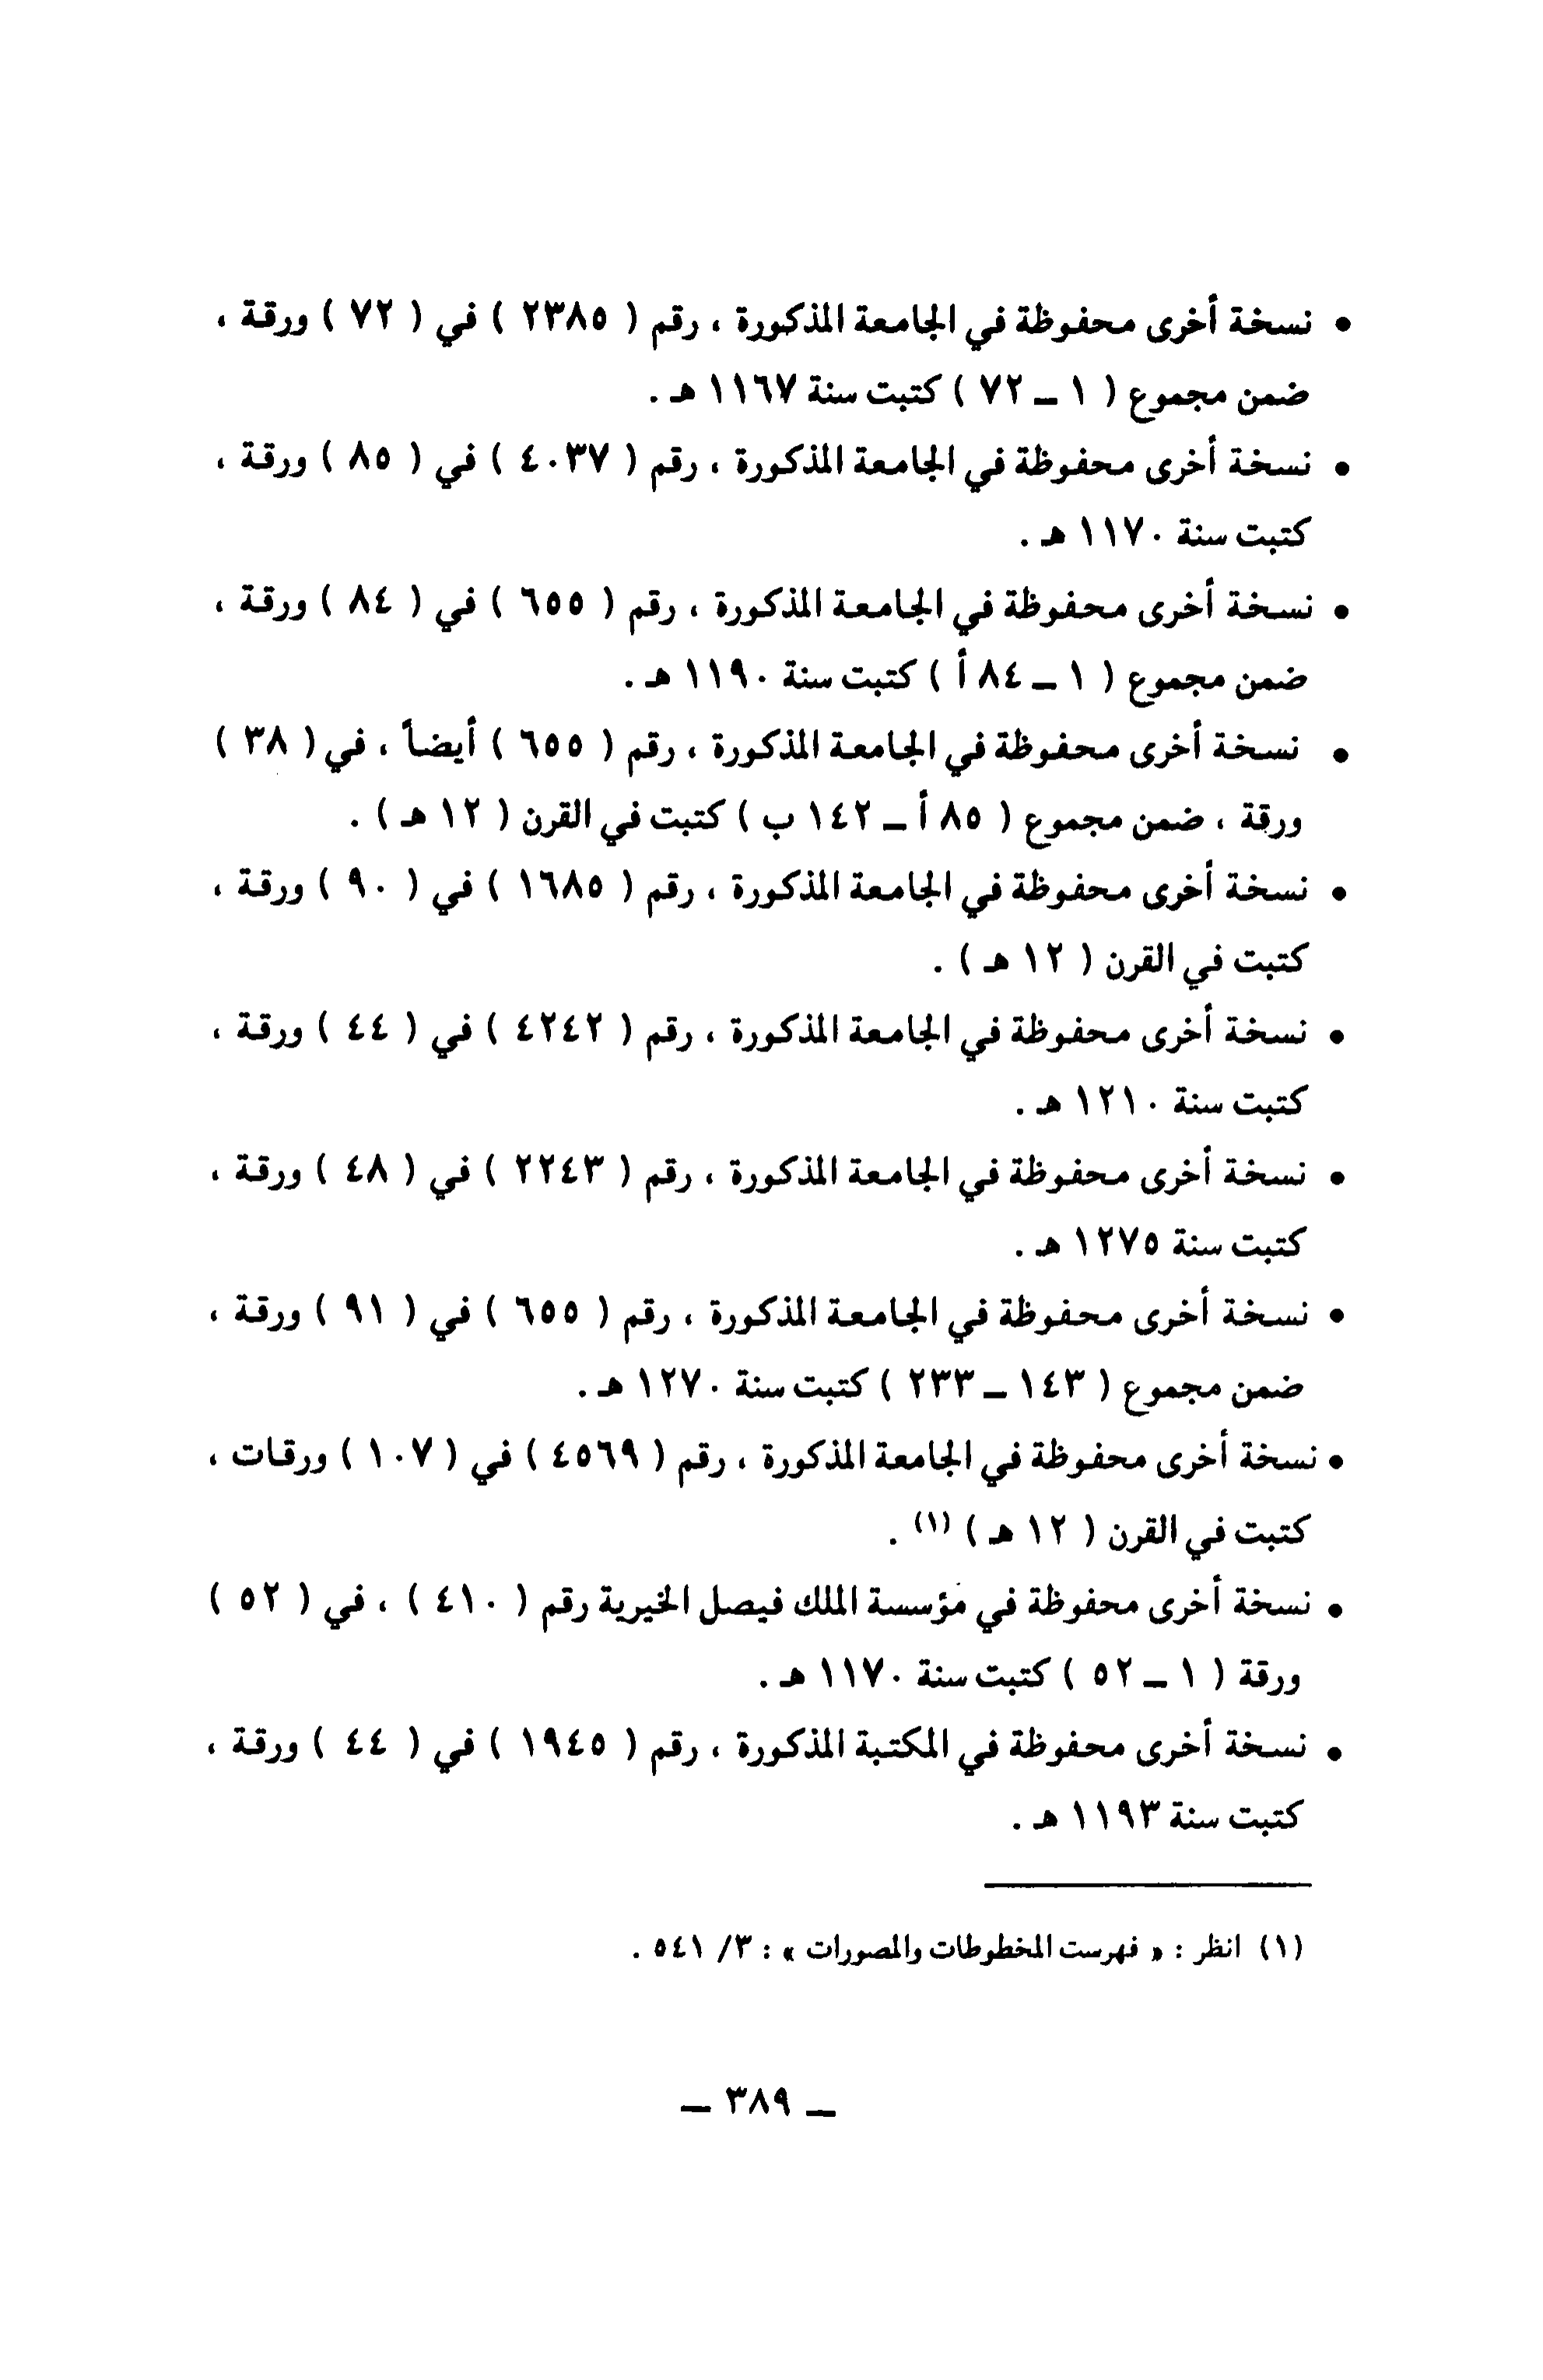 • نسخة أخرى محفوظة في الجامعة المذكورة ، رقم ( ٢٣٨٥ ) في ( ٧٢ ) ورقة ،
ضمن مجموع ( ١ ــ ٧٢ ) كتبت سنة ١١٦٧ هـ .
• نسخة أخرى محفوظة في الجامعة المذكورة ، رقم ( ٤٠٣٧ ) في ( ٨٥ ) ورقة ،
كتبت سنة ١١٧٠ هـ .
• نسخة أخرى محفوظة في الجامعة المذكورة ، رقم ( ٦٥٥ ) في ( ٨٤ ) ورقة ،
ضمن مجموع ( ١ ــ ٨٤ أ ) كتبت سنة ١١٩٠ هـ .
• نسخة أخرى محفوظة في الجامعة المذكورة ، رقم ( ٦٥٥ ) أيضاً ، في ( ٣٨ )
ورقة ، ضمن مجموع ( ٨٥ أ ــ ١٤٢ ب ) كتبت في القرن ( ١٢ هـ ) .
• نسخة أخرى محفوظة في الجامعة المذكورة ، رقم ( ١٦٨٥ ) في ( ٩٠ ) ورقة ،
كتبت في القرن ( ١٢ هـ ) .
• نسخة أخرى محفوظة في الجامعة المذكورة ، رقم ( ٤٢٤٢ ) في ( ٤٤ ) ورقة ،
كتبت سنة ١٢١٠ هـ .
• نسخة أخرى محفوظة في الجامعة المذكورة ، رقم ( ٢٢٤٣ ) في ( ٤٨ ) ورقة ،
كتبت سنة ١٢٧٥ هـ .
• نسخة أخرى محفوظة في الجامعة المذكورة ، رقم ( ٦٥٥ ) في ( ٩١ ) ورقة ،
ضمن مجموع ( ١٤٣ ــ ٢٣٣ ) كتبت سنة ١٢٧٠ هـ .
• نسخة أخرى محفوظة في الجامعة المذكورة ، رقم ( ٤٥٦٩ ) في ( ١٠٧ ) ورقات ،
كتبت في القرن ( ١٢ هـ ) (١) .
• نسخة أخرى محفوظة في مؤسسة الملك فيصل الخيرية رقم ( ٤١٠ ) ، في ( ٥٢ )
ورقة ( ١ ــ ٥٢ ) كتبت سنة ١١٧٠ هـ .
• نسخة أخرى محفوظة في المكتبة المذكورة ، رقم ( ١٩٤٥ ) في ( ٤٤ ) ورقة ،
كتبت سنة ١١٩٣ هـ .
(١) انظر : « فهرست المخطوطات والمصورات » : ٣/ ٥٤١ .
ــ ٣٨٩ ــ